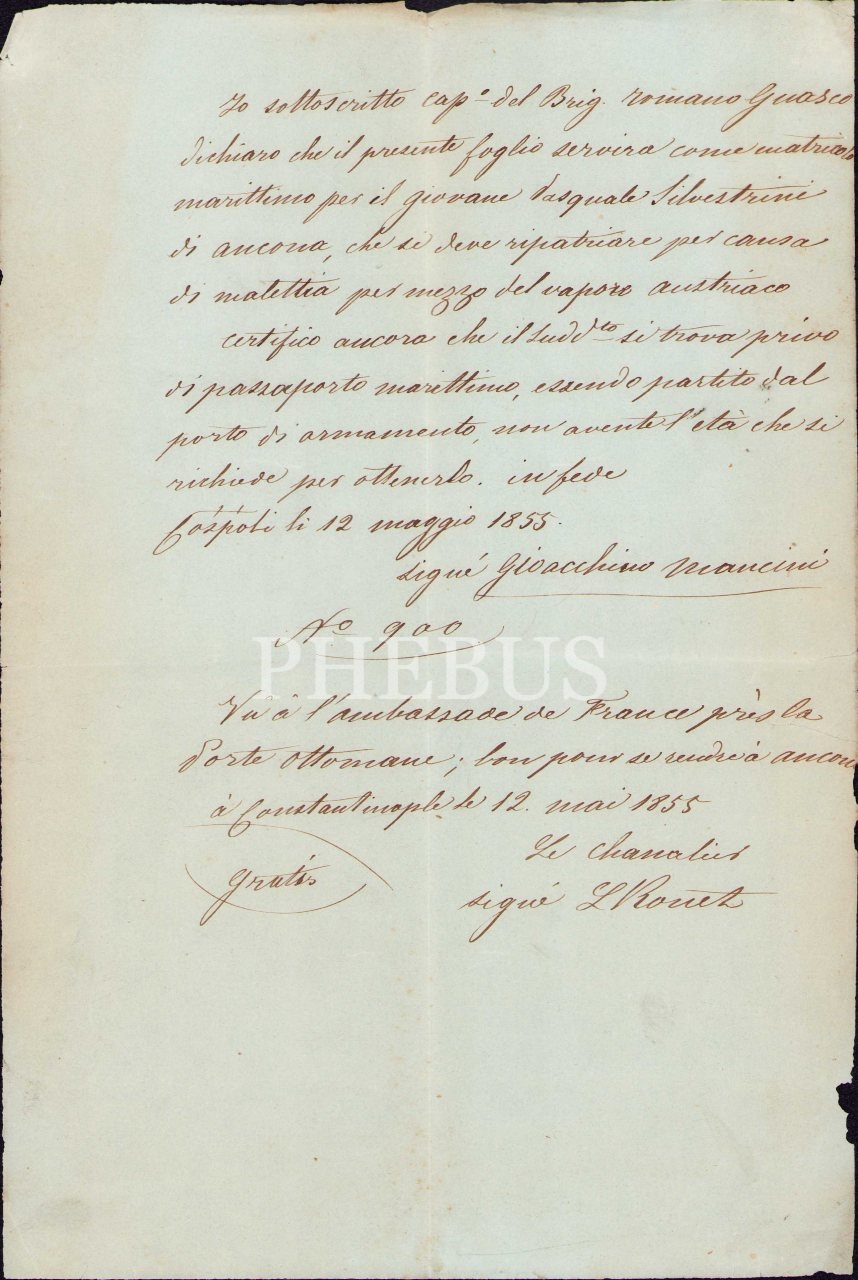 Io sottoscritto cap.º del Brig. romano Guasco
dichiaro che il presente foglio servira come matricola
marittimo per il giovane Pasquale Silvestrini
di ancona, che si deve ripatriare per causa
di malettia per mezzo del vapore austriaco
certifico ancora che il Sudd.to si trova privo
di passaporto marittimo, essendo partito dal
porto di armamento, non avente l'età che si
richiede per ottenerlo. in fede
Cospoli li 12 maggio 1855.
signé Gioacchino Mancini
Nº 900
PHEBUS
Vu à l'ambassade de France près la
Porte ottomane; bon pour se rendre à ancone
à Constantinople le 12. mai 1855
Le Chancelier
gratis
signé